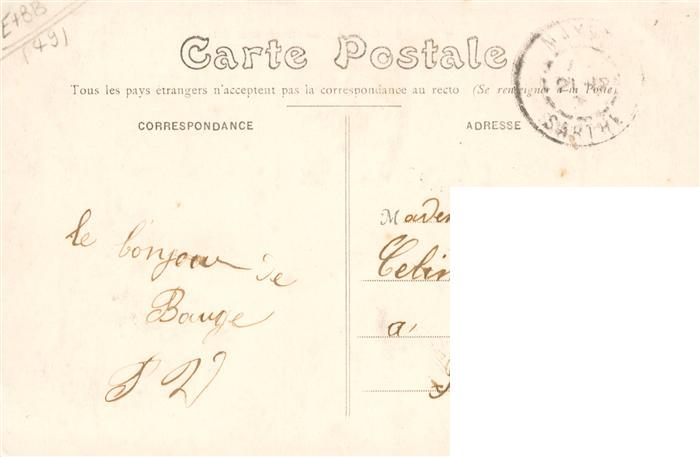 E+BB
(49)
Carte Postale
Tous les pays étrangers n'acceptent pas la correspondance au recto (Se renseigner à la Poste)
CORRESPONDANCE
ADRESSE
SARTHE
le bonjour de
Bauge
Madem
Celin
a